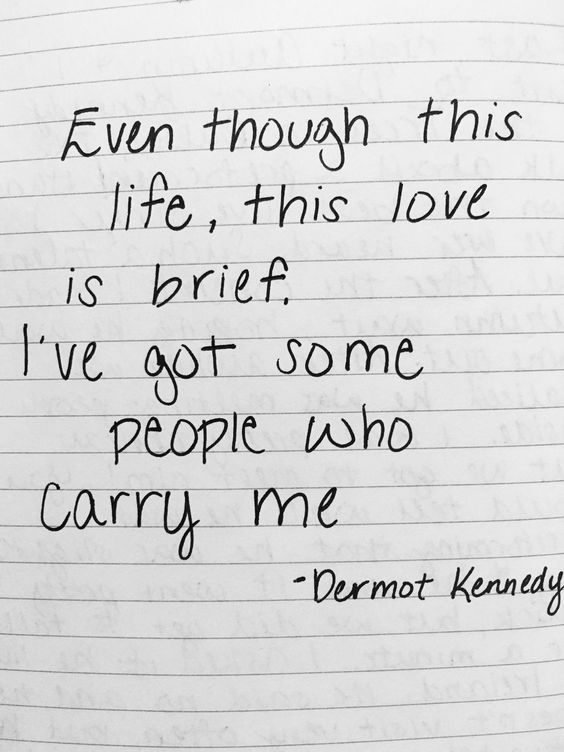 Even though this
life, this love
is brief.
I've got some
people who
carry me
-Dermot Kennedy